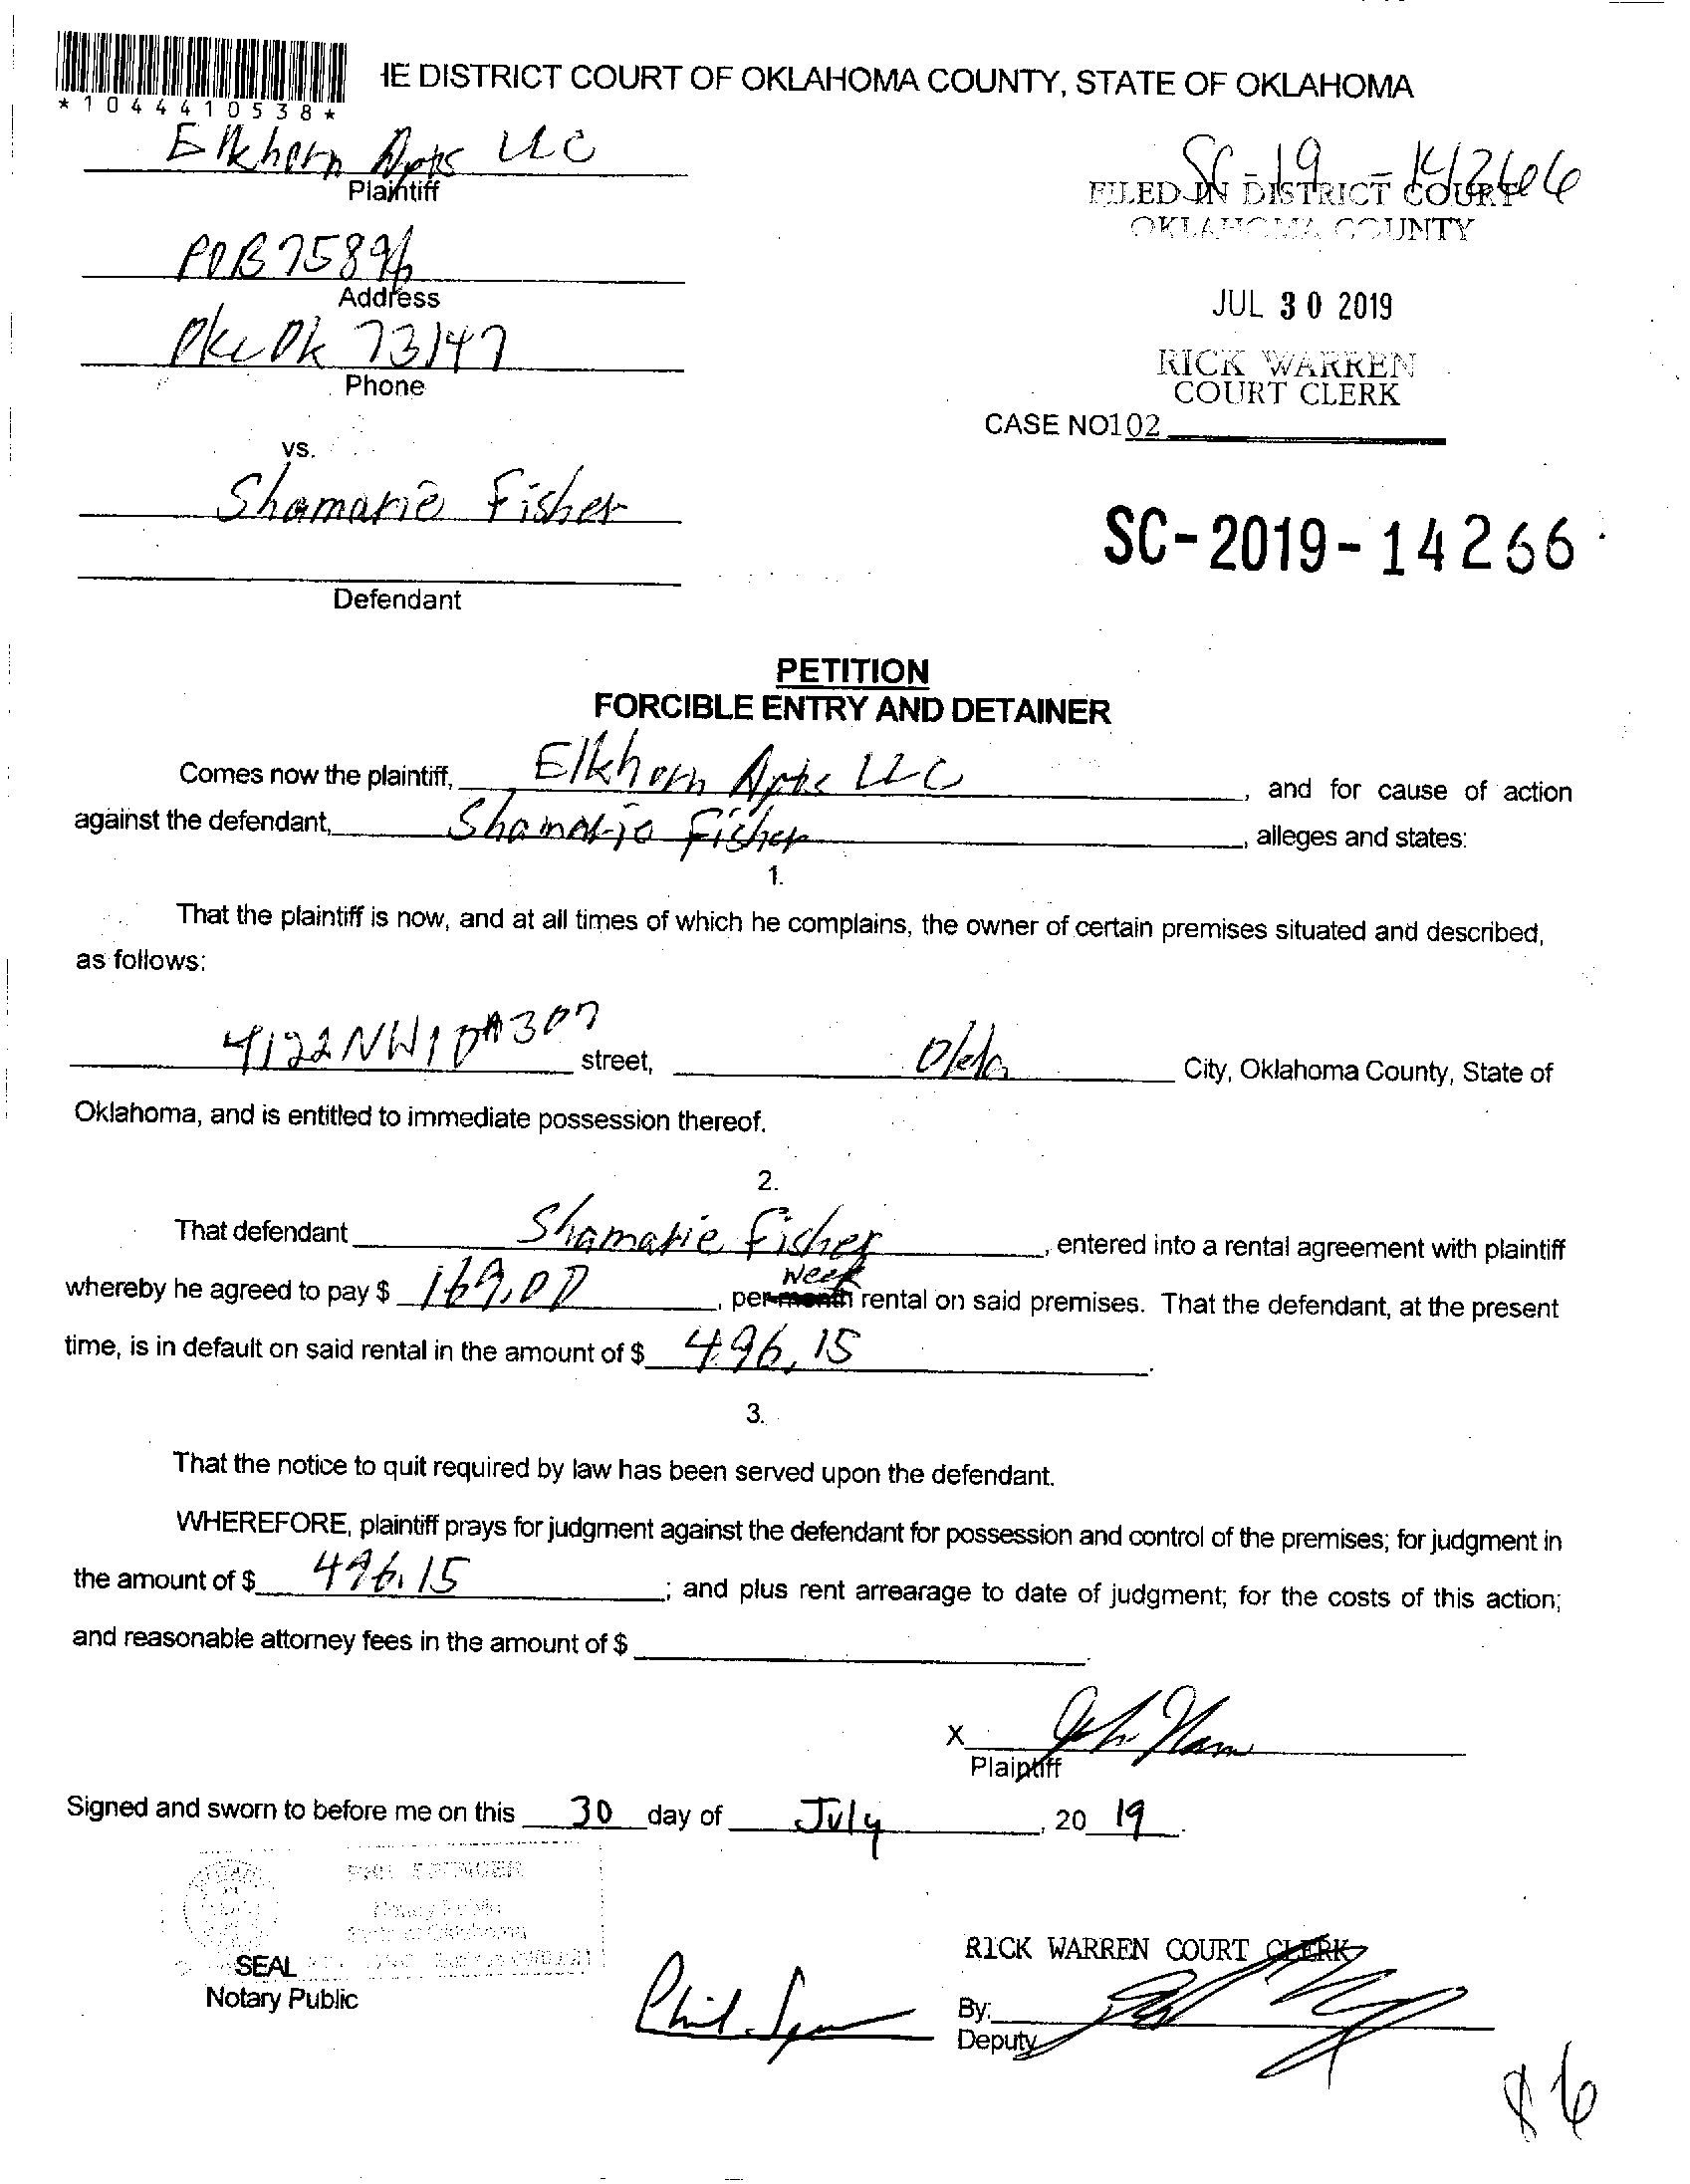 IE DISTRICT COURT OF OKLAHOMA COUNTY, STATE OF OKLAHOMA
*1044410538*
Elkhorn Apts LLC
Plaintiff
SC-19-14266
FILED IN DISTRICT COURT
OKLAHOMA COUNTY
POB 75896
Address
JUL 30 2019
Okc Ok 73147
Phone
RICK WARREN
COURT CLERK
CASE NO102
vs.
Shamarie Fisher
SC-2019-14266
Defendant
PETITION
FORCIBLE ENTRY AND DETAINER
Comes now the plaintiff, Elkhorn Apts LLC, and for cause of action
against the defendant, Shamarie Fisher, alleges and states:
1.
That the plaintiff is now, and at all times of which he complains, the owner of certain premises situated and described,
as follows:
4122 NW 10 #307 street, Okla City, Oklahoma County, State of
Oklahoma, and is entitled to immediate possession thereof.
2.
That defendant Shamarie Fisher, entered into a rental agreement with plaintiff
week
whereby he agreed to pay $ 169.00, per month rental on said premises. That the defendant, at the present
time, is in default on said rental in the amount of $ 496.15.
3.
That the notice to quit required by law has been served upon the defendant.
WHEREFORE, plaintiff prays for judgment against the defendant for possession and control of the premises; for judgment in
the amount of $ 496.15; and plus rent arrearage to date of judgment; for the costs of this action;
and reasonable attorney fees in the amount of $ .
X
Plaintiff
Signed and sworn to before me on this 30 day of July, 20 19.
Notary Public
State of Oklahoma
SEAL
Notary Public
RICK WARREN COURT CLERK
By:
Deputy
86